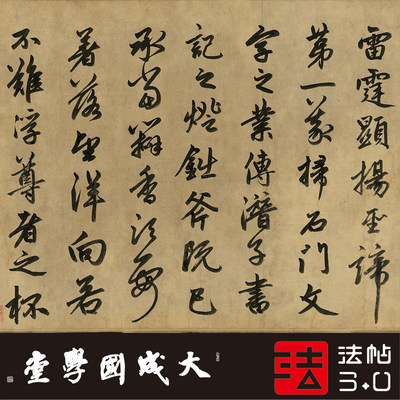 雷霆顯揚聖諦
第一義掃石門文
字之業傳潛子書
記之燈鈯斧既已
承當瓣香須要
著落望洋向若
不難浮尊者之杯
大成國學堂
法
法帖
3.0